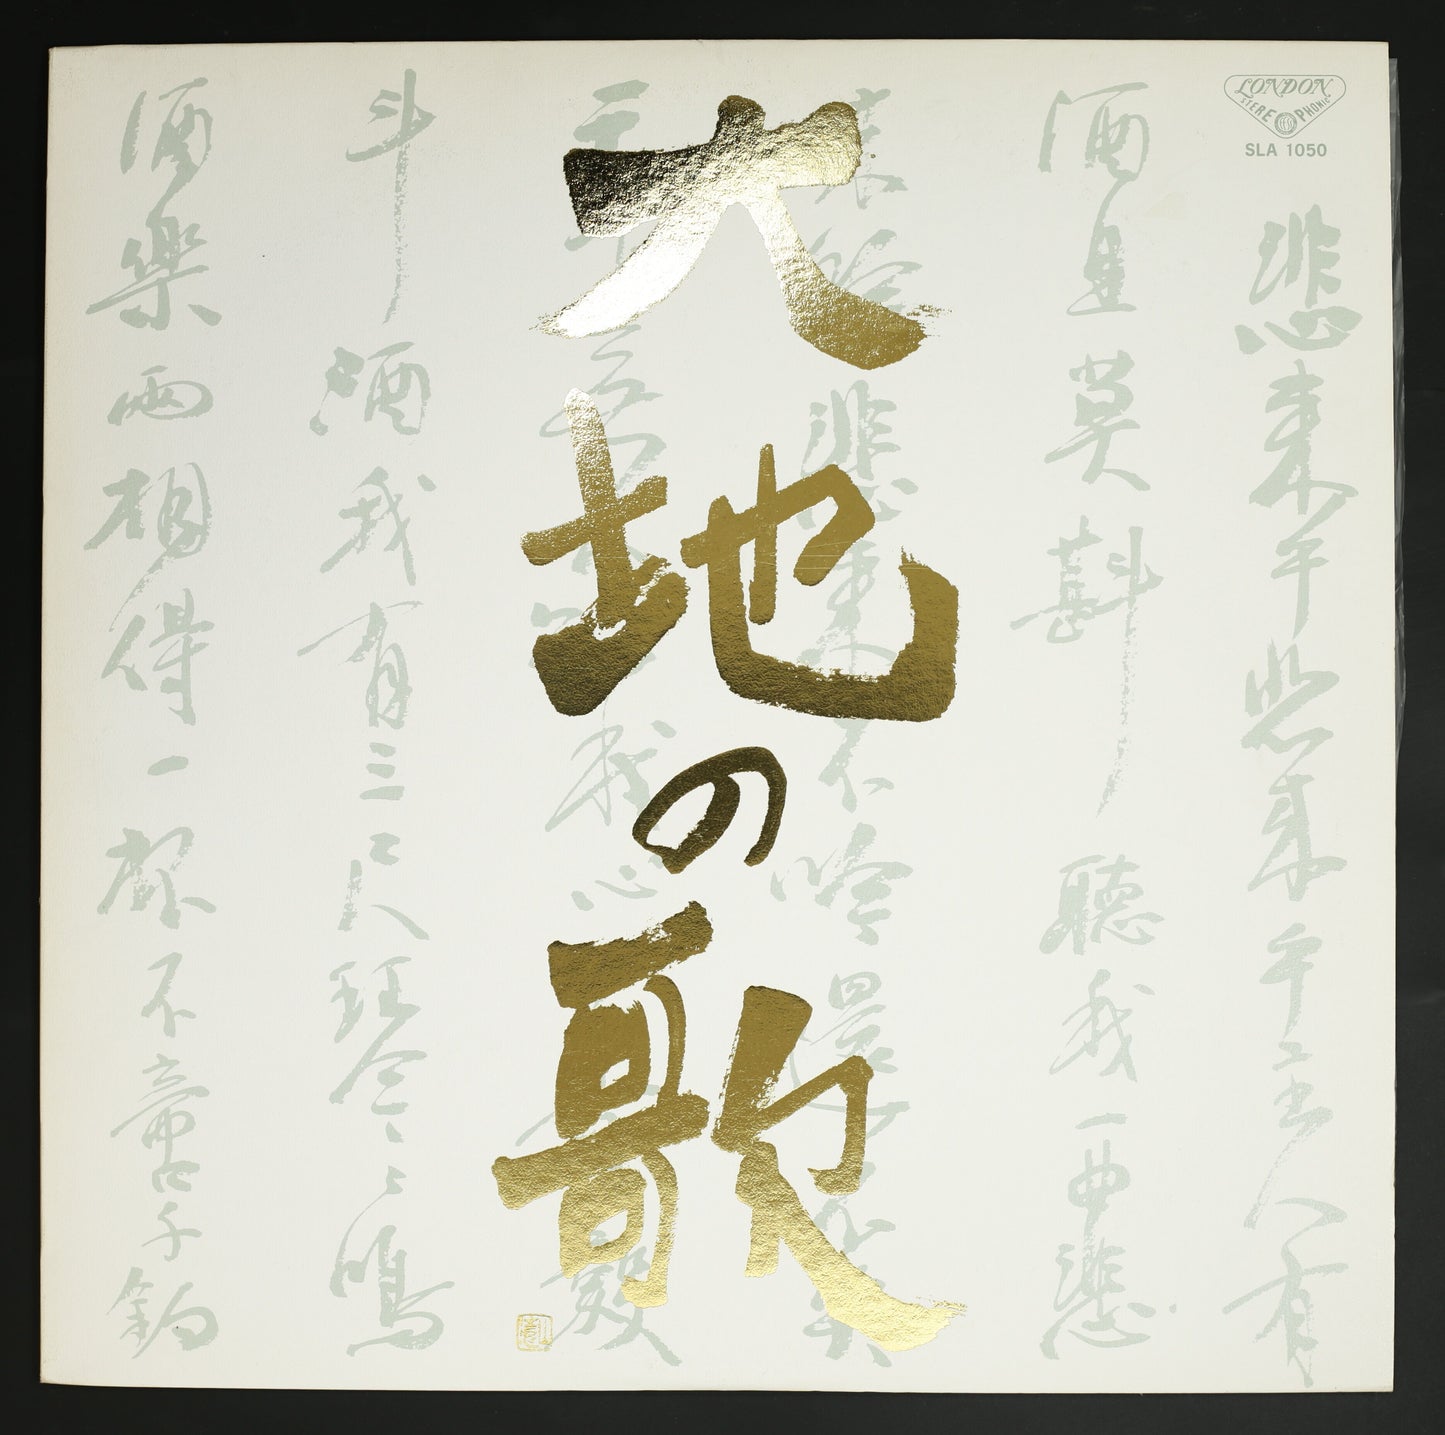 LONDON
STEREOPHONIC
SLA 1050
大地の歌
悲来乎悲来乎主人有
酒且莫斟聽我一曲悲
来吟悲来不吟還不笑
天下無人知我心君有數
斗酒我有三尺琴々鳴
酒樂兩相得一杯不啻千鈞